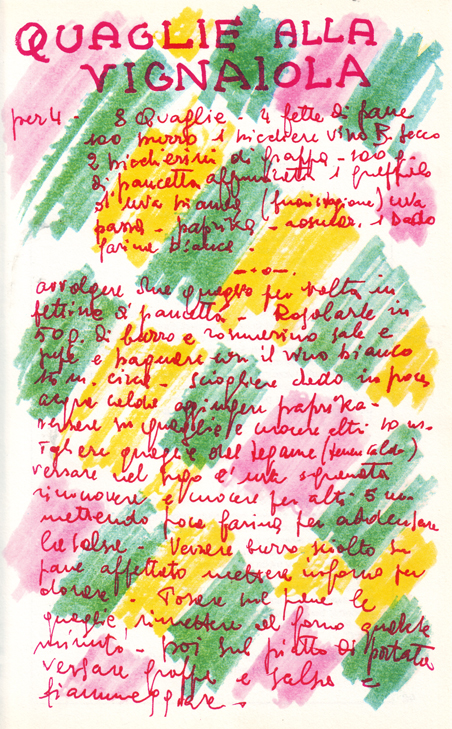 QUAGLIE ALLA
VIGNAIOLA
per 4 - 8 Quaglie - 4 fette di pane
100 burro 1 bicchiere vino B. secco
2 bicchierini di grappa - 100 g
di pancetta affumicata 1 grappolo
d'uva bianca (fuori stagione) uva
passa - paprika - rosmar. 1 Dado
farina bianca -
avvolgere due quaglie per volta in
fettine di pancetta - Rosolarle in
50 g. di burro e rosmarino sale e
pepe e bagnare con il vino bianco
15 m. circa - sciogliere dado in poca
acqua calda aggiungere paprika -
versare su quaglie e cuocere altri 10 m.
Togliere quaglie dal tegame (tenere caldo)
versare nel sugo l'uva sgranata
rimuovere e cuocere per altri 5 m.
mettendo poca farina per addensare
la salsa - Versare burro sciolto su
pane affettato mettere in forno per
dorare - Posare sul pane le
quaglie rimettere al forno qualche
minuto - poi sul piatto di portata
versare grappa e salsa e
fiammeggiare -